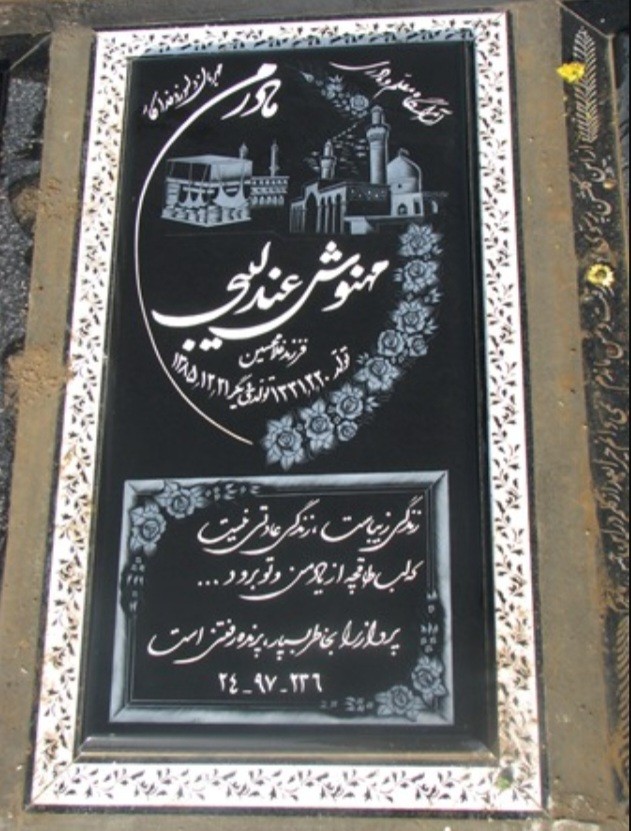 آرامگاه معلم و مادری
مهربان دلسوز فداکار
مادرم
مهنوش عندلیبی
فرزند غلامحسین
تولد ۱۳۳۱,۲,۲۰ تولد دیگر ۱۳۸۵,۱۲,۲۱
زندگی زیباست ، زندگی عادتی نیست
که لب طاقچه از یاد من و تو برود ...
پرواز را بخاطر بسپار، پرنده رفتنی است
۲۳۶ - ۹۷ - ۲۴